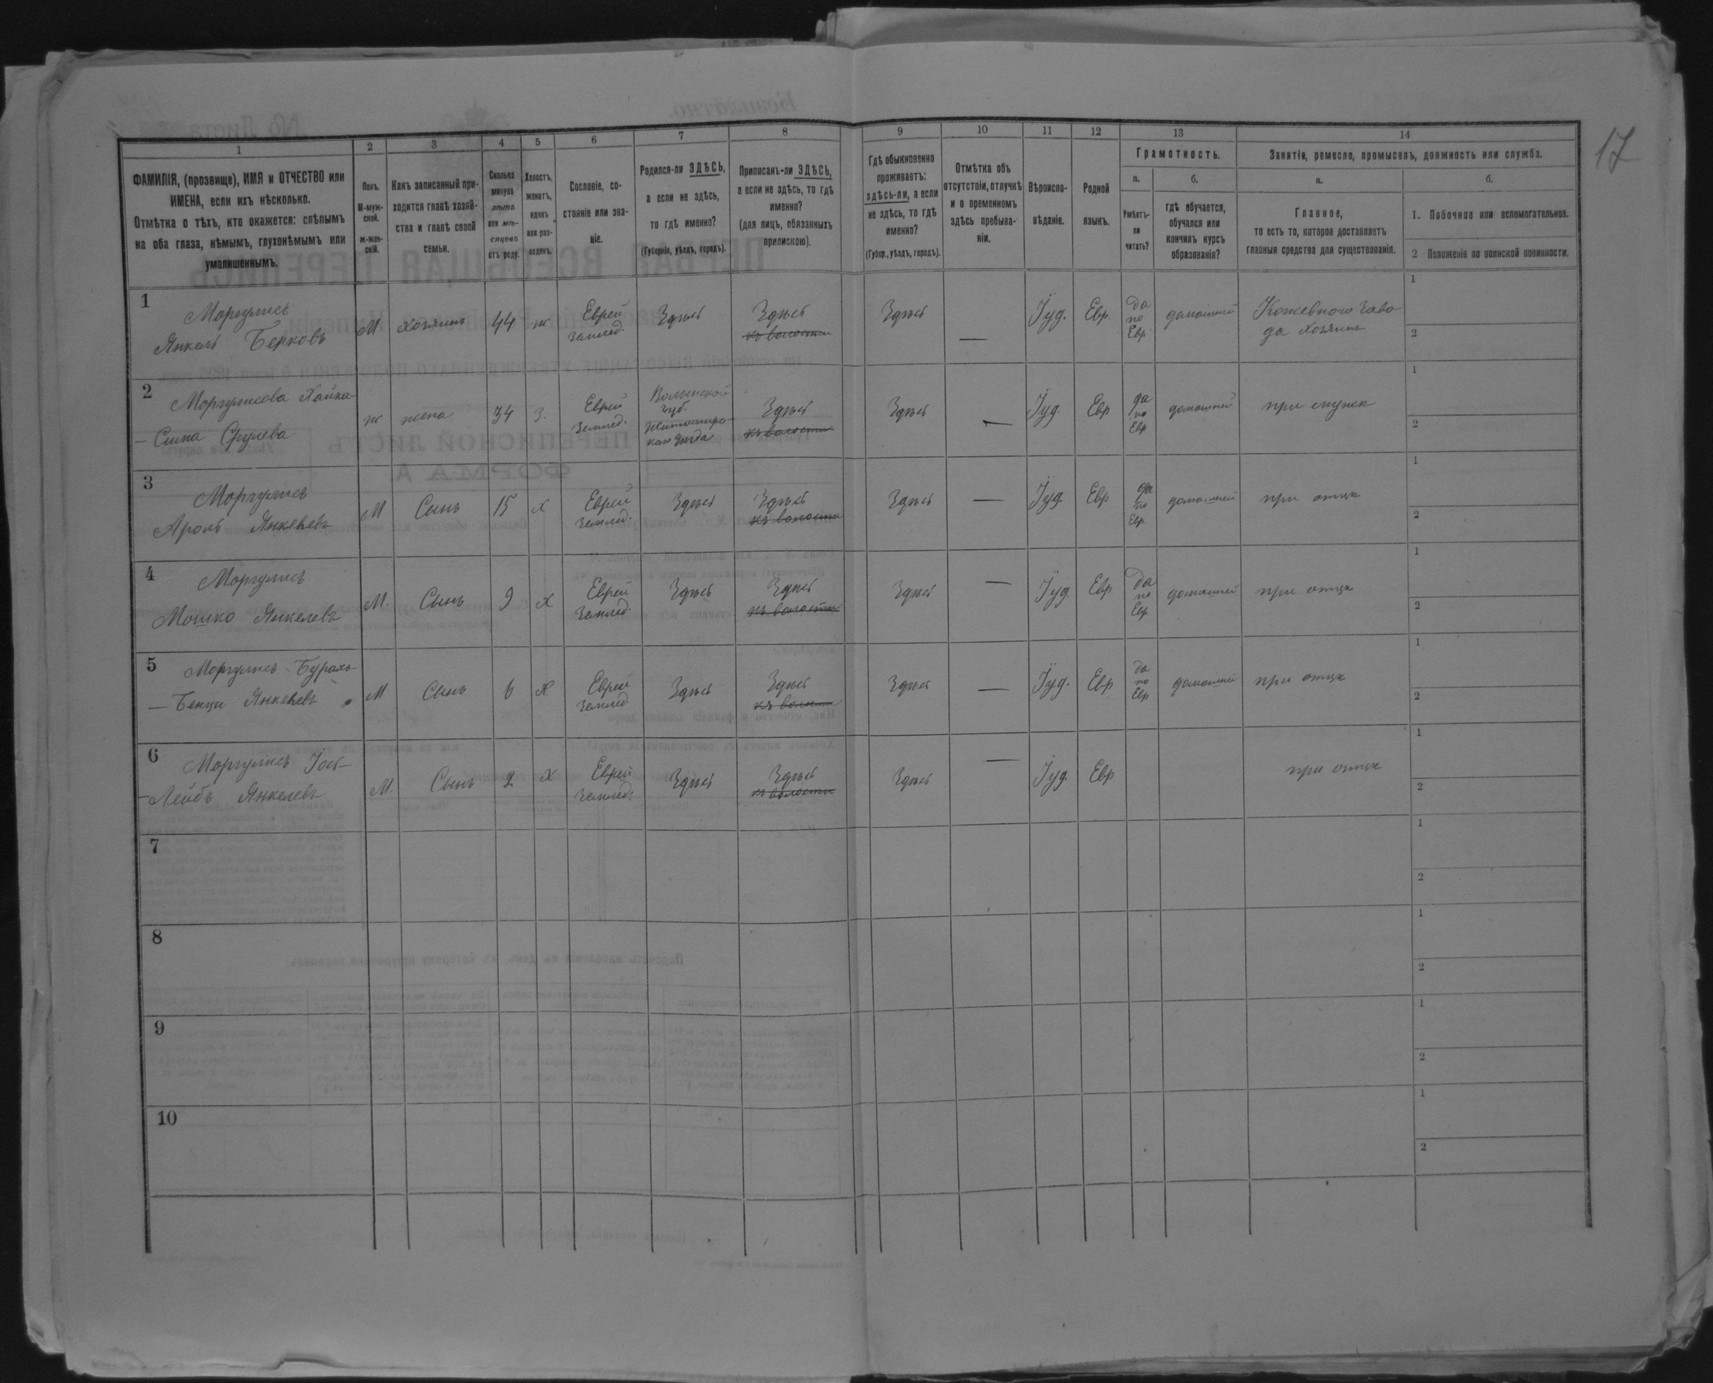 17
1 2 3 4 5 6 7 8 9 10 11 12 13 14
ФАМИЛІЯ, (прозвище), ИМЯ и ОТЧЕСТВО или
ИМЕНА, если ихъ нѣсколько.
Отмѣтка о тѣхъ, кто окажется: слѣпымъ
на оба глаза, нѣмымъ, глухонѣмымъ или
умалишеннымъ.
Полъ.
М-муж-
ской.
ж-жен-
скій.
Какъ записанный при-
ходится главѣ хозяй-
ства и главѣ своей
семьи.
Сколько
минуло
лѣтъ
или мѣ-
сяцевъ
отъ роду.
Холостъ,
женатъ,
вдовъ
или раз-
веденъ.
Сословіе, со-
стояніе или зва-
ніе.
Родился-ли ЗДѢСЬ,
а если не здѣсь,
то гдѣ именно?
(Губернія, уѣздъ, городъ).
Приписанъ-ли ЗДѢСЬ,
а если не здѣсь, то гдѣ
именно?
(для лицъ, обязанныхъ
припискою).
Гдѣ обыкновенно
проживаетъ:
здѣсь-ли, а если
не здѣсь, то гдѣ
именно?
(Губер., уѣздъ, городъ).
Отмѣтка объ
отсутствіи, отлучкѣ
и о временномъ
здѣсь пребыва-
ніи.
Вѣроиспо-
вѣданіе.
Родной
языкъ.
Грамотность.
а.
Умѣетъ-
ли
читать?
б.
гдѣ обучается,
обучался или
кончилъ курсъ
образованія?
Занятіе, ремесло, промыселъ, должность или служба.
а.
Главное,
то есть то, которое доставляетъ
главныя средства для существованія.
б.
1. Побочное или вспомогательное.
2 Положеніе по воинской повинности.
1
Моргулисъ
Янкель Берковъ
М.
хозяинъ
44
ж
Еврей
землед.
Здѣсь
Здѣсь
къ волости
Здѣсь
—
Іуд.
Евр
да
по
Евр
домашней
Кожевного заво
да хозяинъ
1
2
2
Моргулисова Хайка
— Сима
ж
жена
34
з.
Еврей
землед.
Волынской
губ.
Житомирс-
каго уѣзда
Здѣсь
къ волости
Здѣсь
—
Іуд.
Евр
да
по
Евр
домашней
при мужѣ
1
2
3
Моргулисъ
Аронъ Янкелевъ
М
Сынъ
15
х
Еврей
землед.
Здѣсь
Здѣсь
къ волости
Здѣсь
—
Іуд.
Евр
да
по
Евр
домашней
при отцѣ
1
2
4
Моргулисъ
Мошко Янкелевъ
М.
Сынъ
9
х
Еврей
землед.
Здѣсь
Здѣсь
къ волости
Здѣсь
—
Іуд.
Евр
да
по
Евр
домашней
при отцѣ
1
2
5
Моргулисъ Бурахъ-
— Бенци Янкелевъ
М
Сынъ
6
х
Еврей
землед
Здѣсь
Здѣсь
къ волости
Здѣсь
—
Іуд.
Евр
да
по
Евр
домашней
при отцѣ
1
2
6
Моргулисъ Іось-
-Лейбъ Янкелевъ
М.
Сынъ
2
х
Еврей
землед.
Здѣсь
Здѣсь
къ волости
Здѣсь
—
Іуд.
Евр
при отцѣ
1
2
7
1
2
8
1
2
9
1
2
10
1
2